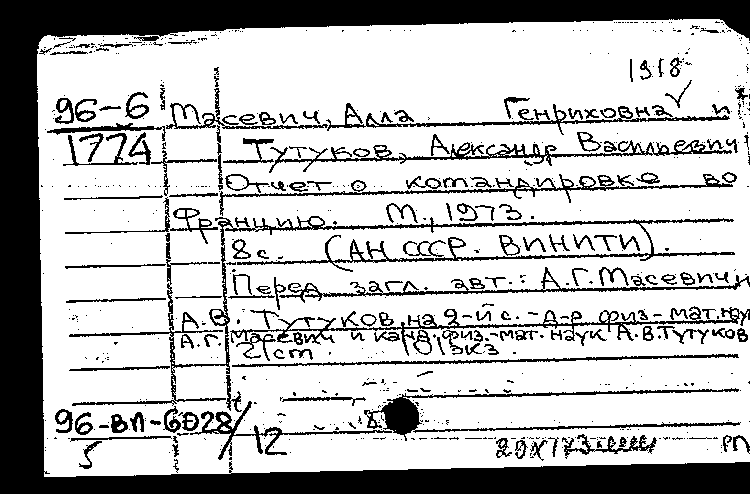 1918
96-6 Масевич, Алла Генриховна и
1774 Тутуков, Александр Васильевич
Отчет о командировке во
Францию. М., 1973.
8 с. (АН СССР. ВИНИТИ).
Перед загл. авт.: А.Г. Масевич, и
А.В. Тутуков, на 2-й с. - д-р физ-мат. наук
А.Г. Масевич и канд. физ.-мат. наук А.В. Тутуков
2/ст. 101экз.
96-ВП-6028/12
5 20X173 РП